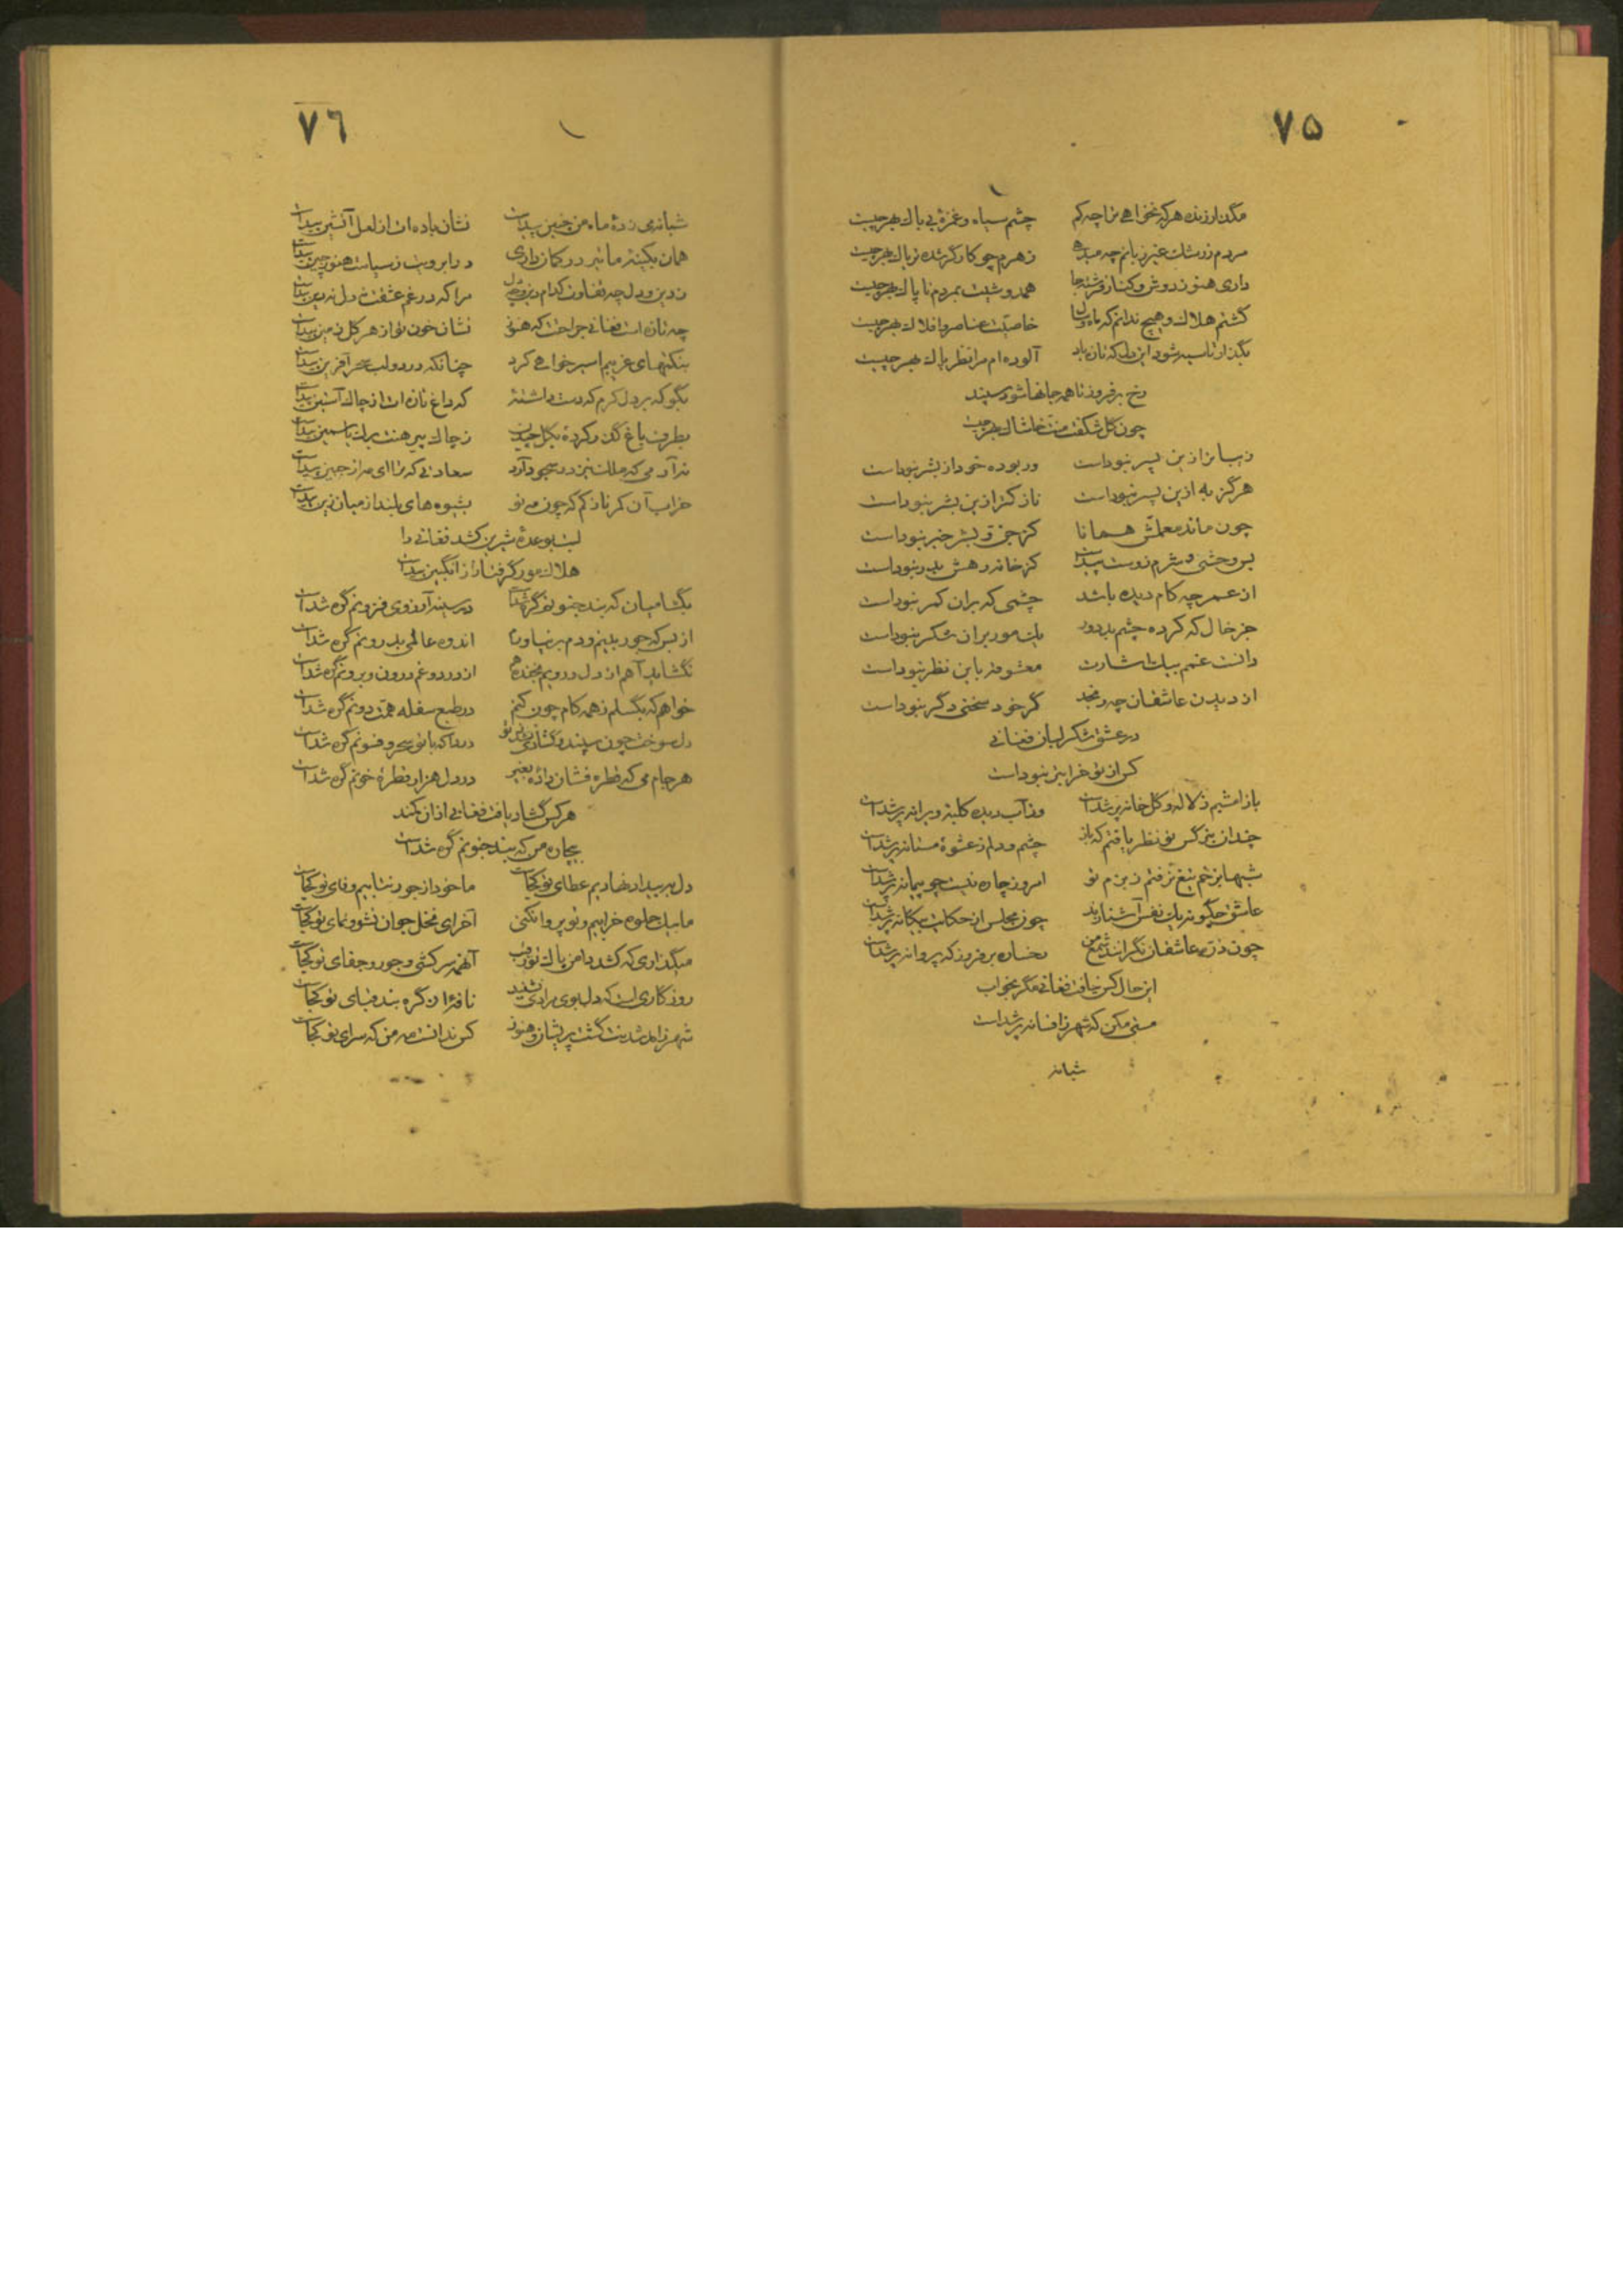 ۷۵
مگذار زنده هر که نخواهی ترا چه کم چشم سیاه و غمزهٔ بی باک بهر چیست
مردم ز رشک غیر ندانم چه میدهی زهرم چو کارگر شده تریاک بهر چیست
داری هنوز دوش و کنار فرشته جا همدوشیت بمردم ناپاک بهر چیست
گشتم هلاک و هیچ ندانم که خاصیت عناصر و افلاک بهر چیست
بگذار تا سیه شود این دل که آلوده‌ام مرا نظر پاک بهر چیست
رخ برفروز تا همه جانها شود سپند
چون گل شکفت منت خاشاک بهر چیست
زیباتر ازین پسر نبوداست ور بوده خود از بشر نبوداست
هرگز به ازین پسر نبوداست نازکتر ازین بشر نبوداست
چون ماند معلمش همانا کز جن و بشر خبر نبوداست
بس وحشی و شرم روست پیداست کز خانه رهش بدر نبوداست
از عمر چه کام دیده باشد چشمی که بران کمر نبوداست
جز خال که کرده چشم بد دور یک مور بران شکر نبوداست
دانست غمم بیک اشارت معشوقه باین نظر نبوداست
از دیدن عاشقان چه رنجد گر خود سخنی دگر نبوداست
در عشق شکر لبان فغانی
کس از تو خرابتر نبوداست
باز امشبم ز لاله و گل خانه پر شداست وز آب دیده کلبهٔ ویرانه پر شداست
چندان بنرگس تو نظر یافتم که باز چشم و دلم ز عشوهٔ مستانه پر شداست
شبها بزخم تیغ نرفتم ز بزم تو امروز چاره نیست چو پیمانه پر شداست
عاشق چگونه یک نفس آشنا زند چون مجلس از حکایت بیگانه پر شداست
چون ذره عاشقان نگرانند شمع من رخساره برفروز که پروانه پر شداست
این حال کس نیافت فغانی مگر بخواب
مستی مکن که شهر ز افسانه پر شداست
شبانه
۷۶
شبانه می زدهٔ ماه من چنین پیداست نشان باده‌ات از لعل آتشین پیداست
همان بکینهٔ ما تیر در کمان داری در ابرویت ز سیاست هنوز چین پیداست
ز دین و دل چه تفاوت کدام دین و چه دل مرا که در غم عشقت نه دل نه دین پیداست
چه تازه است فغانی جراحت که هنوز نشان خون تو از هر گل زمین پیداست
بنکتهای غریبم اسیر خواهی کرد چنانکه در دو لب سحر آفرین پیداست
بگو که بر دل گرم که دست داشتهٔ که داغ تازه‌ات از چاک آستین پیداست
بطرف باغ گذر کردهٔ بگل چیدن ز چاک پیرهنت برگ یاسمین پیداست
نه آدمی که ملک نیز در سجود آرد سعادتی که ترا ای مه از جبین پیداست
خراب آن کمر نازکم که چون مه نو بشیوه‌های بلند از میان زین پیداست
لبت بوعدهٔ شیرین کشد فغانی را
هلاک مور گرفتار از انگبین پیداست
بگشا میان که بند جنونم گره شداست در سینه آرزوی فزونم گره شداست
از بس که جور بینم و دم بر نیاورم اندوه عالمی بدرونم گره شداست
نگشاید آهم از دل و رویم بخنده هم از درد و غم درون و برونم گره شداست
خواهم که بگسلم ز همه کام چون کنم در طبع سفله همت دونم گره شداست
دل سوخت چون سپند و گشادی ندید ازو دردا که با تو سحر و فسونم گره شداست
هر جام می که قطره فشان دادهٔ بغیر در دل هزار قطرهٔ خونم گره شداست
هر کس گشاد یافت فغانی ازان کمند
بیچاره من که بند جنونم گره شداست
دل به بیداد نهادیم عطای تو کجاست ما خود از جور نتابیم وفای تو کجاست
ما بیک جلوه خرابیم و تو پروا نکنی آخر ای نخل جوان نشو و نمای تو کجاست
میگذاری که کشد دامن پاک تو رقیب آنهمه سرکشی و جور و جفای تو کجاست
روزگاریست که دل بوی مرادی نشنید نافهٔ از گره بند قبای تو کجاست
شهر زاهد شدنت گشت پریشان و هنوز کس ندانست مه من که سرای تو کجاست